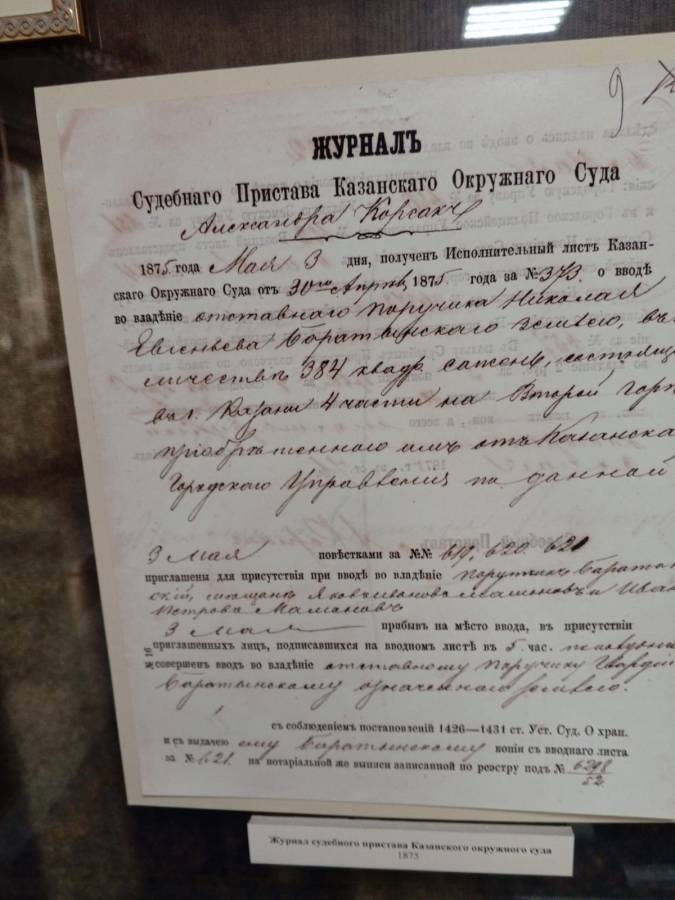 9
ЖУРНАЛЪ
Судебнаго Пристава Казанскаго Окружнаго Суда
Александра Корсакъ
1875 года Мая 3 дня, полученъ Исполнительный листъ Казан-
скаго Окружнаго Суда отъ 30го Апрѣля 1875 года за № 373 о вводѣ
во владѣніе отставнаго поручика Николая
Евгеньева Баратынскаго землею, въ
личествѣ 384 квадр. сажень, состоящ
въ г. Казани 4 части на Второй Гор
пріобрѣтенного имъ отъ Казанска
Городскаго Управленія по данной
3 Мая повѣстками за №№ 619, 620 621
приглашены для присутствія при вводѣ во владѣніе поручикъ Барат
скій, мѣщане Яковъ Ивановъ и Иван
Петровъ Мамановъ
3 Мая прибывъ на мѣсто ввода, въ присутствіи
приглашенныхъ лицъ, подписавшихся на вводномъ листѣ въ 5 час. пополудни
совершенъ вводъ во владѣніе отставному поручику Гвардіи
Баратынскому означенного землею.
съ соблюденіемъ постановленій 1426—1431 ст. Уст. Суд. О хран.
и съ выдачею ему Баратынскому копіи съ вводнаго листа
за № 621. на нотаріальной же выписи записанной по реэстру подъ №
52
Журнал судебного пристава Казанского окружного суда
1875